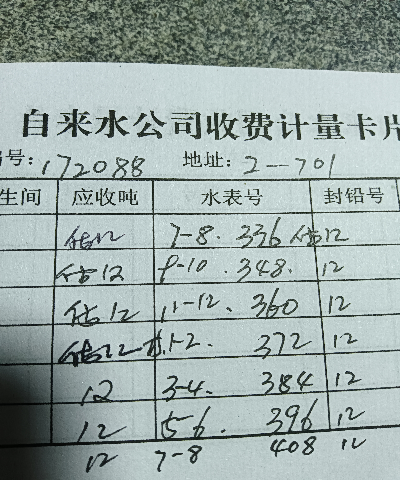 自来水公司收费计量卡片
号:172088 地址:2-701
生间 应收吨 水表号 封铅号
估12 7-8. 336 估12
估12 9-10. 348. 12
估12 11-12. 360 12
估12 1-2. 372 12
12 3-4. 384 12
12 5-6. 396 12
12 7-8 408 12